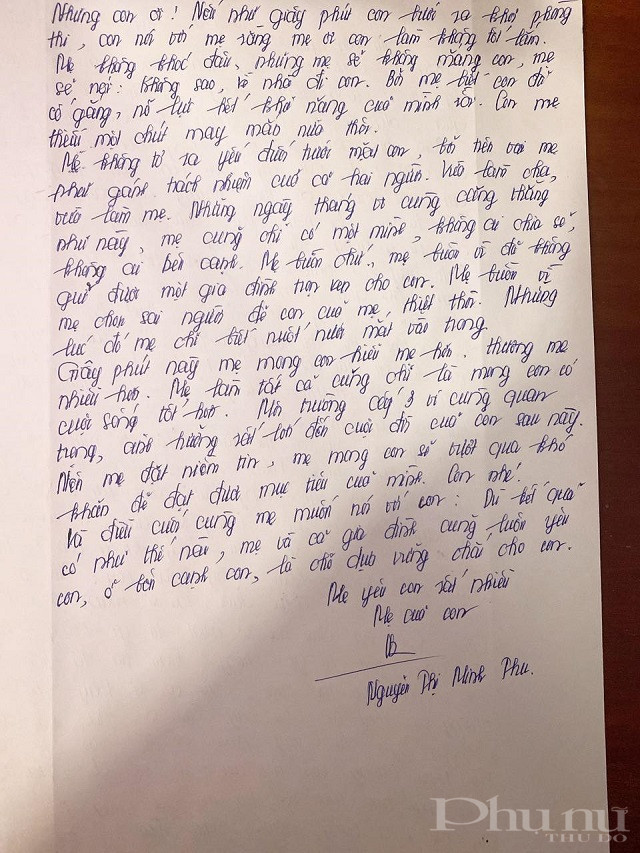 Nhưng con ơi! Nếu như giây phút con bước ra khỏi phòng
thi, con nói với mẹ rằng mẹ ơi con làm không tốt lắm.
Mẹ không khóc đâu, nhưng mẹ sẽ không mắng con, mẹ
sẽ nói: không sao, về nhà đi con. Bởi mẹ biết con đã
cố gắng, nỗ lực hết khả năng của mình rồi. Con mẹ
thiếu một chút may mắn nữa thôi.
Mẹ không tỏ ra yếu đuối trước mặt con, bởi trên vai mẹ
phải gánh trách nhiệm của cả hai người. Vừa làm cha,
vừa làm mẹ. Những ngày tháng vô cùng căng thẳng
như này, mẹ cũng chỉ có một mình, không ai chia sẻ,
không ai bên cạnh. Mẹ buồn chứ, mẹ buồn vì đã không
giữ được một gia đình trọn vẹn cho con. Mẹ buồn vì
mẹ chọn sai người để con của mẹ thiệt thòi. Những
lúc đó mẹ chỉ biết nuốt nước mắt vào trong.
Giây phút này mẹ mong con hiểu mẹ hơn. Thương mẹ
nhiều hơn. Mẹ làm tất cả cũng chỉ là mong con có
cuộc sống tốt hơn. Môi trường cấp 3 vô cùng quan
trọng, ảnh hưởng rất lớn đến cuộc đời của con sau này.
Nên mẹ đặt niềm tin, mẹ mong con sẽ vượt qua khó
khăn để đạt được mục tiêu của mình. Con nhé.
Và điều cuối cùng mẹ muốn nói với con: Dù kết quả
có như thế nào, mẹ và cả gia đình cũng luôn yêu
con, ở bên cạnh con, là chỗ dựa vững chắc cho con.
Mẹ yêu con rất nhiều
Mẹ của con
Nguyễn Thị Minh Phu.
Phụ nữ
THỦ ĐÔ